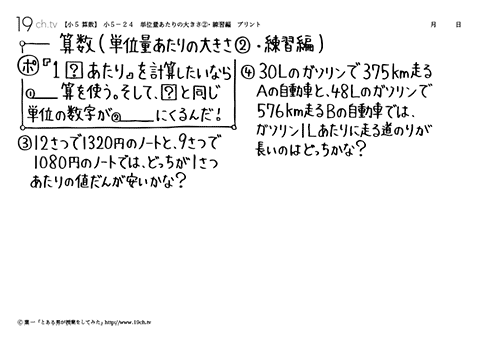 19ch.tv 【小5算数】 小5－24 単位量あたりの大きさ②・練習編 プリント 月 日
算数(単位量あたりの大きさ②・練習編)
ポ『1?あたり』を計算したいなら
①＿＿算を使う。そして、?と同じ
単位の数字が②＿＿にくるんだ!
③12さつで1320円のノートと、9さつで
1080円のノートでは、どっちが1さつ
あたりの値だんが安いかな?
④30Lのガソリンで375km走る
Aの自動車と、48Lのガソリンで
576km走るBの自動車では、
ガソリン1Lあたりに走る道のりが
長いのはどっちかな?
© 葉一「とある男が授業をしてみた」http://www.19ch.tv